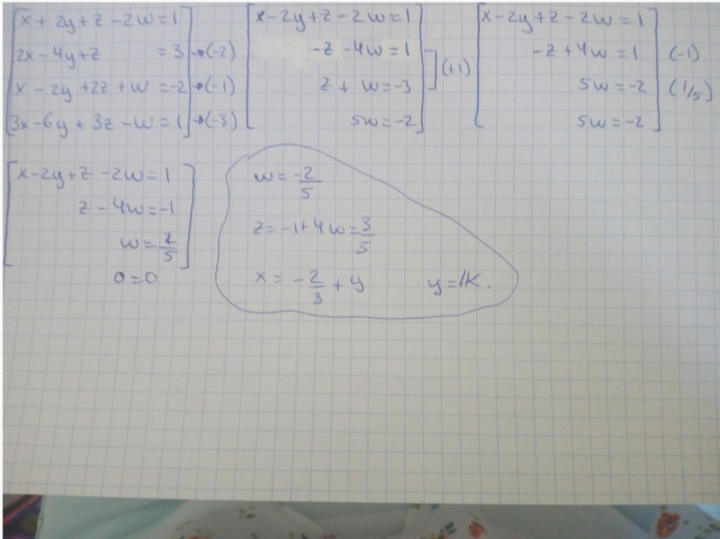 x + 2y + z - 2w = 1
2x - 4y + z = 3 → (-2)
x - 2y + 2z + w = -2 → (-1)
3x - 6y + 3z - w = 1 → (-3)
x - 2y + z - 2w = 1
-z - 4w = 1
z + w = -3
5w = -2
(+1)
x - 2y + z - 2w = 1
-z + 4w = 1 (-1)
5w = -2 (1/5)
5w = -2
x - 2y + z - 2w = 1
z - 4w = -1
w = 2/5
0 = 0
w = -2/5
z = -1 + 4w = 3/5
x = -2/3 + y y = lK.